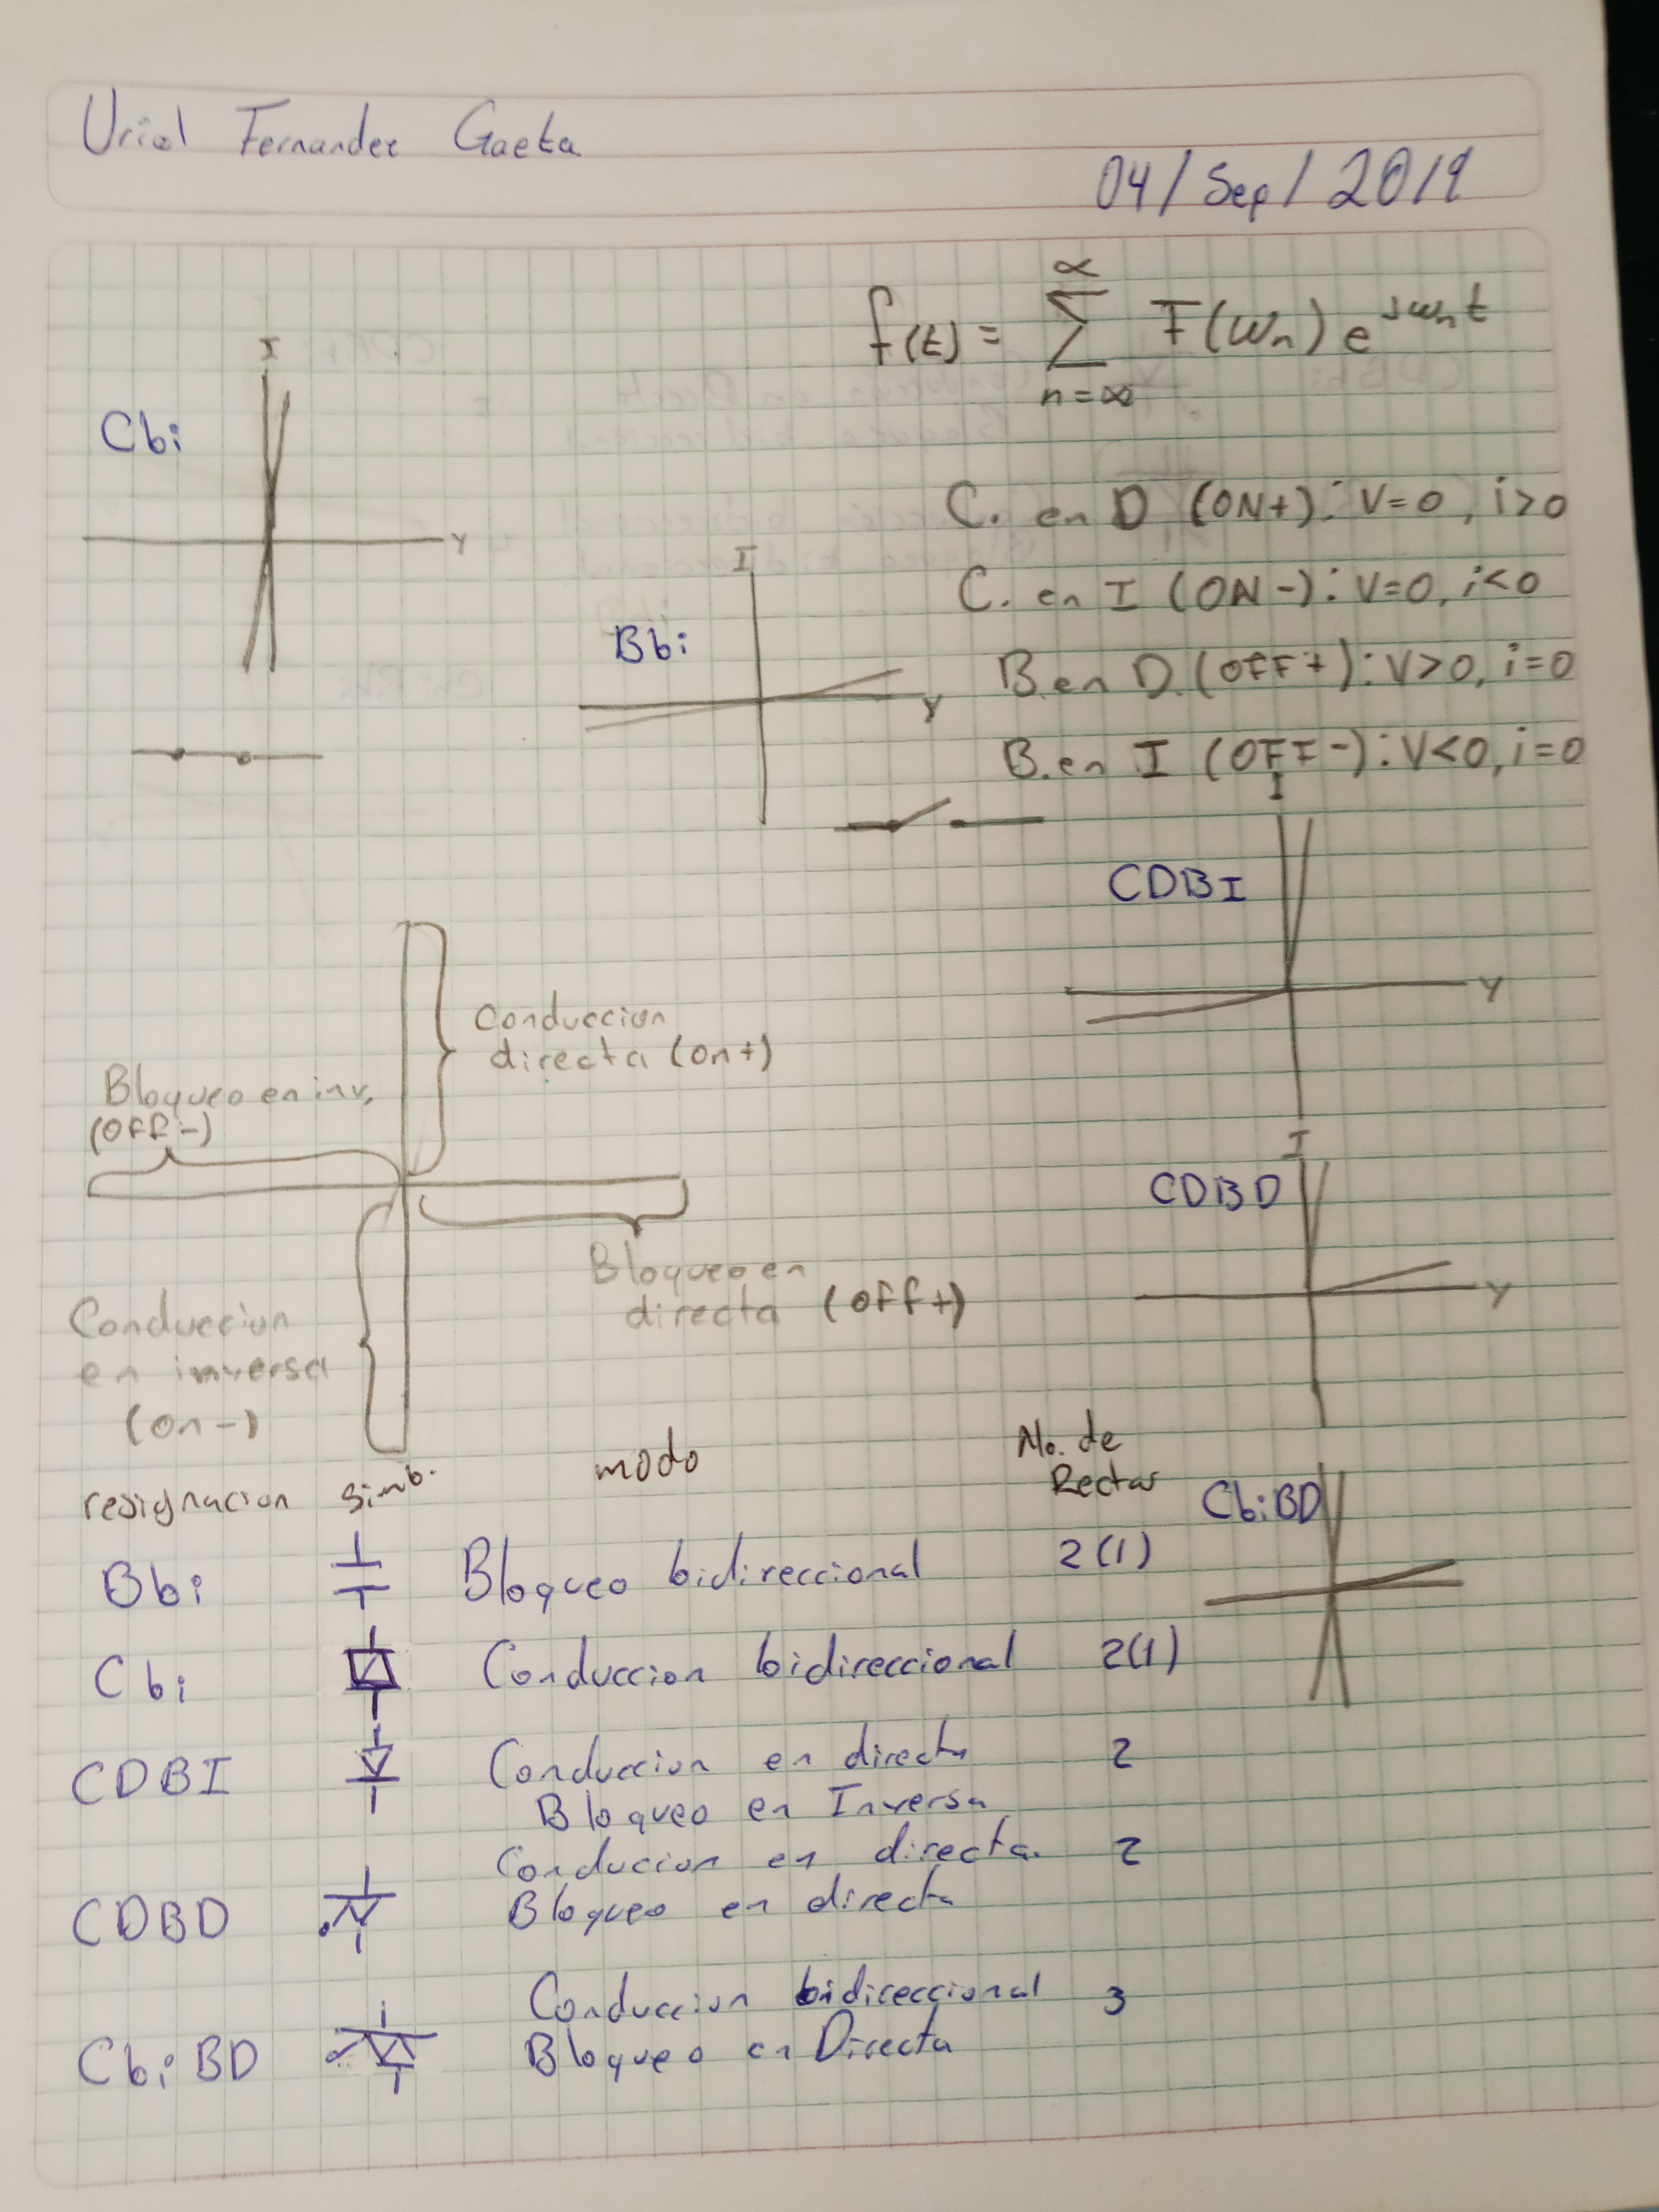 Uriel Fernandez Gaeta
04/Sep/2019
f(t) = ∑ F(ωn) e^jωnt
∝
n=∞
I
Cbi
Y
C. en D (ON+): V=0, i>0
C. en I (ON-): V=0, i<0
B. en D. (OFF+): V>0, i=0
B. en I (OFF-): V<0, i=0
I
Bbi
Y
I
CDBI
Y
Conduccion
directa (on+)
Bloqueo en inv.
(off-)
Bloqueo en
directa (off+)
Conduccion
en inversa
(on-)
I
CDBD
Y
CbiBD
resignacion simb. modo No. de
Rectas
Bbi Bloqueo bidireccional 2(1)
Cbi Conduccion bidireccional 2(1)
CDBI Conduccion en directa 2
Bloqueo en Inversa
Conducion en directa. 2
CDBD Bloqueo en directa
Conduccion bidireccional 3
CbiBD Bloqueo en Directa